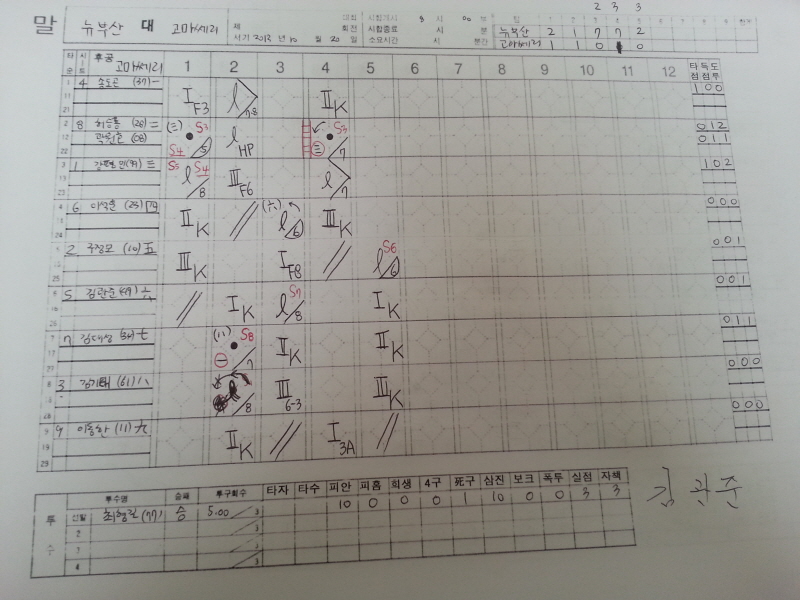 2 3 3
말 뉴부산 대 고마쎄리 제 대회 시합개시 8 시 00 분 팀 1 2 3 4 5 6 7 8 9
회전 시합종료 시 분 뉴부산 2 1 7 7 2
서기 2013 년 10 월 20 일 소요시간 시 분간 고마쎄리 1 1 0 1 0
타순 시트 후공 고마쎄리 1 2 3 4 5 6 7 8 9 10 11 12 타점 득점 도루
4 (37) 一 I F3 l 7-8 II K 1 0 0
8 (28) 二 (三) S3 S4 5 l HP S3 (三) 7 0 1 2
(08) 0 1 1
1 (99) 三 S3 l S4 8 III F6 l 7 1 0 2
6 (25) 四 II K // (六) l 6 III K 0 0 0
2 (10) 五 III K I F8 // S6 l 6 0 0 1
5 김관준 (49) 六 // I K l S7 8 I K 0 0 1
7 (34) 七 (八) S8 7 II K II K 0 1 1
3 (61) 八 l 8 III 6-3 III K 0 0 0
9 (11) 九 II K // I 3A // 0 0 0
투수 투수명 승패 투구회수 타자 타수 피안 피홈 희생 4구 死구 삼진 보크 폭투 실점 자책
1 선발 (77) 승 5.00 /3 10 0 0 0 1 10 0 0 3 3
2 /3
3 /3
4 /3
김관준